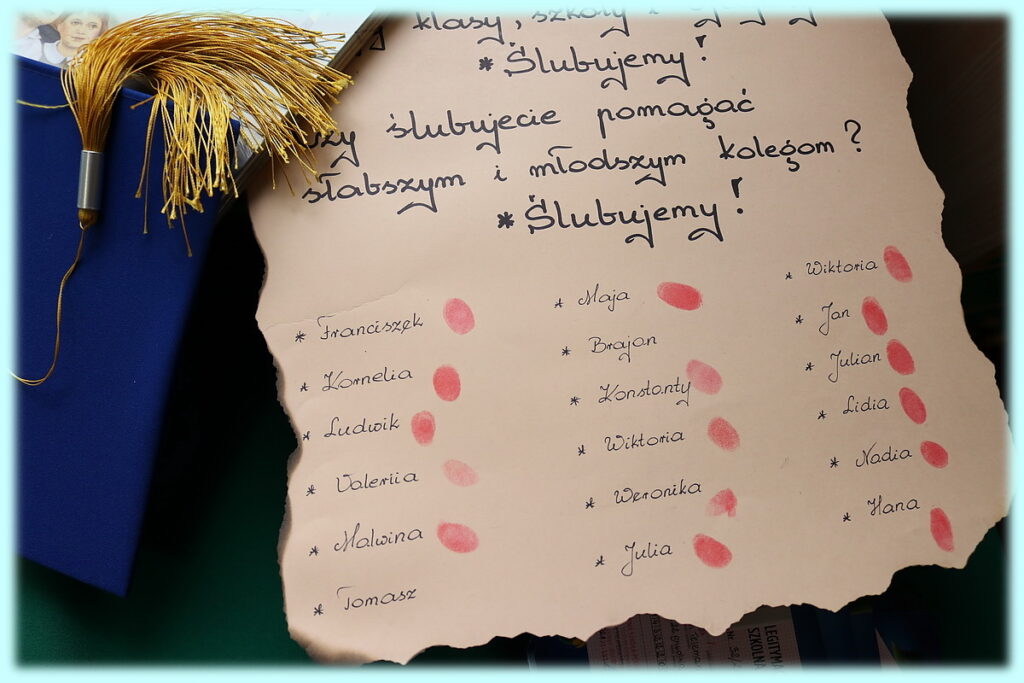 klasy, szkoły i
* Ślubujemy!
Czy ślubujecie pomagać
słabszym i młodszym kolegom?
* Ślubujemy!
* Franciszek
* Kornelia
* Ludwik
* Valeriia
* Malwina
* Tomasz
* Maja
* Brajan
* Konstanty
* Wiktoria
* Weronika
* Julia
* Wiktoria
* Jan
* Julian
* Lidia
* Nadia
* Hana
LEGITYM
SZKOLNA